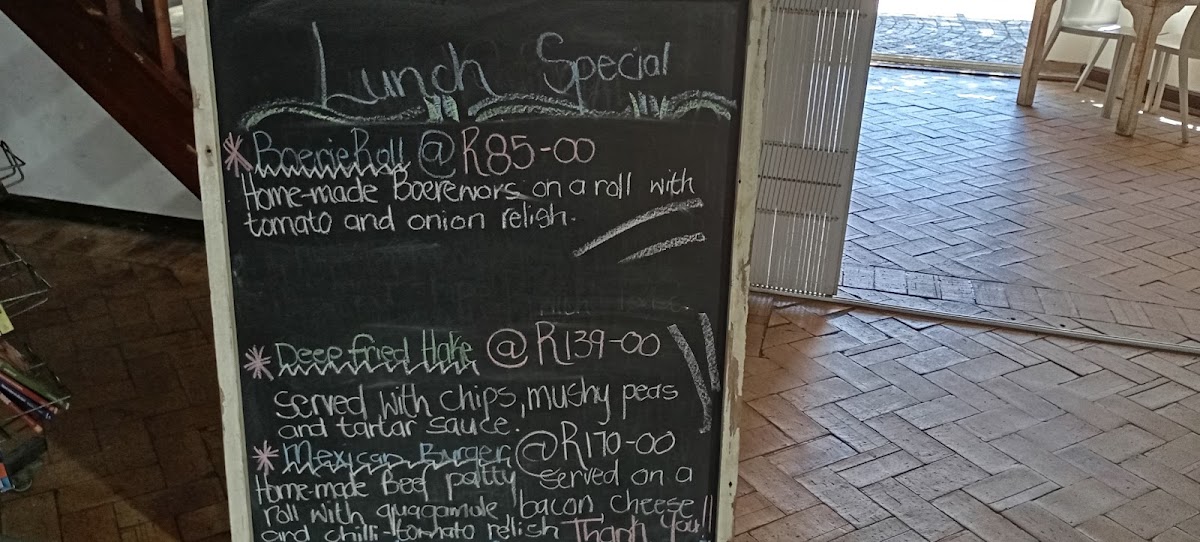 Lunch Special
* BoerieRoll @ R85-00
Home-made Boerewors on a roll with
tomato and onion relish.
* Deep fried Hake @ R139-00
served with chips, mushy peas
and tartar sauce.
* Mexican Burger @ R170-00
Home-made Beef patty served on a
roll with guagamole bacon, cheese
and chilli-tomato relish Thank You!!